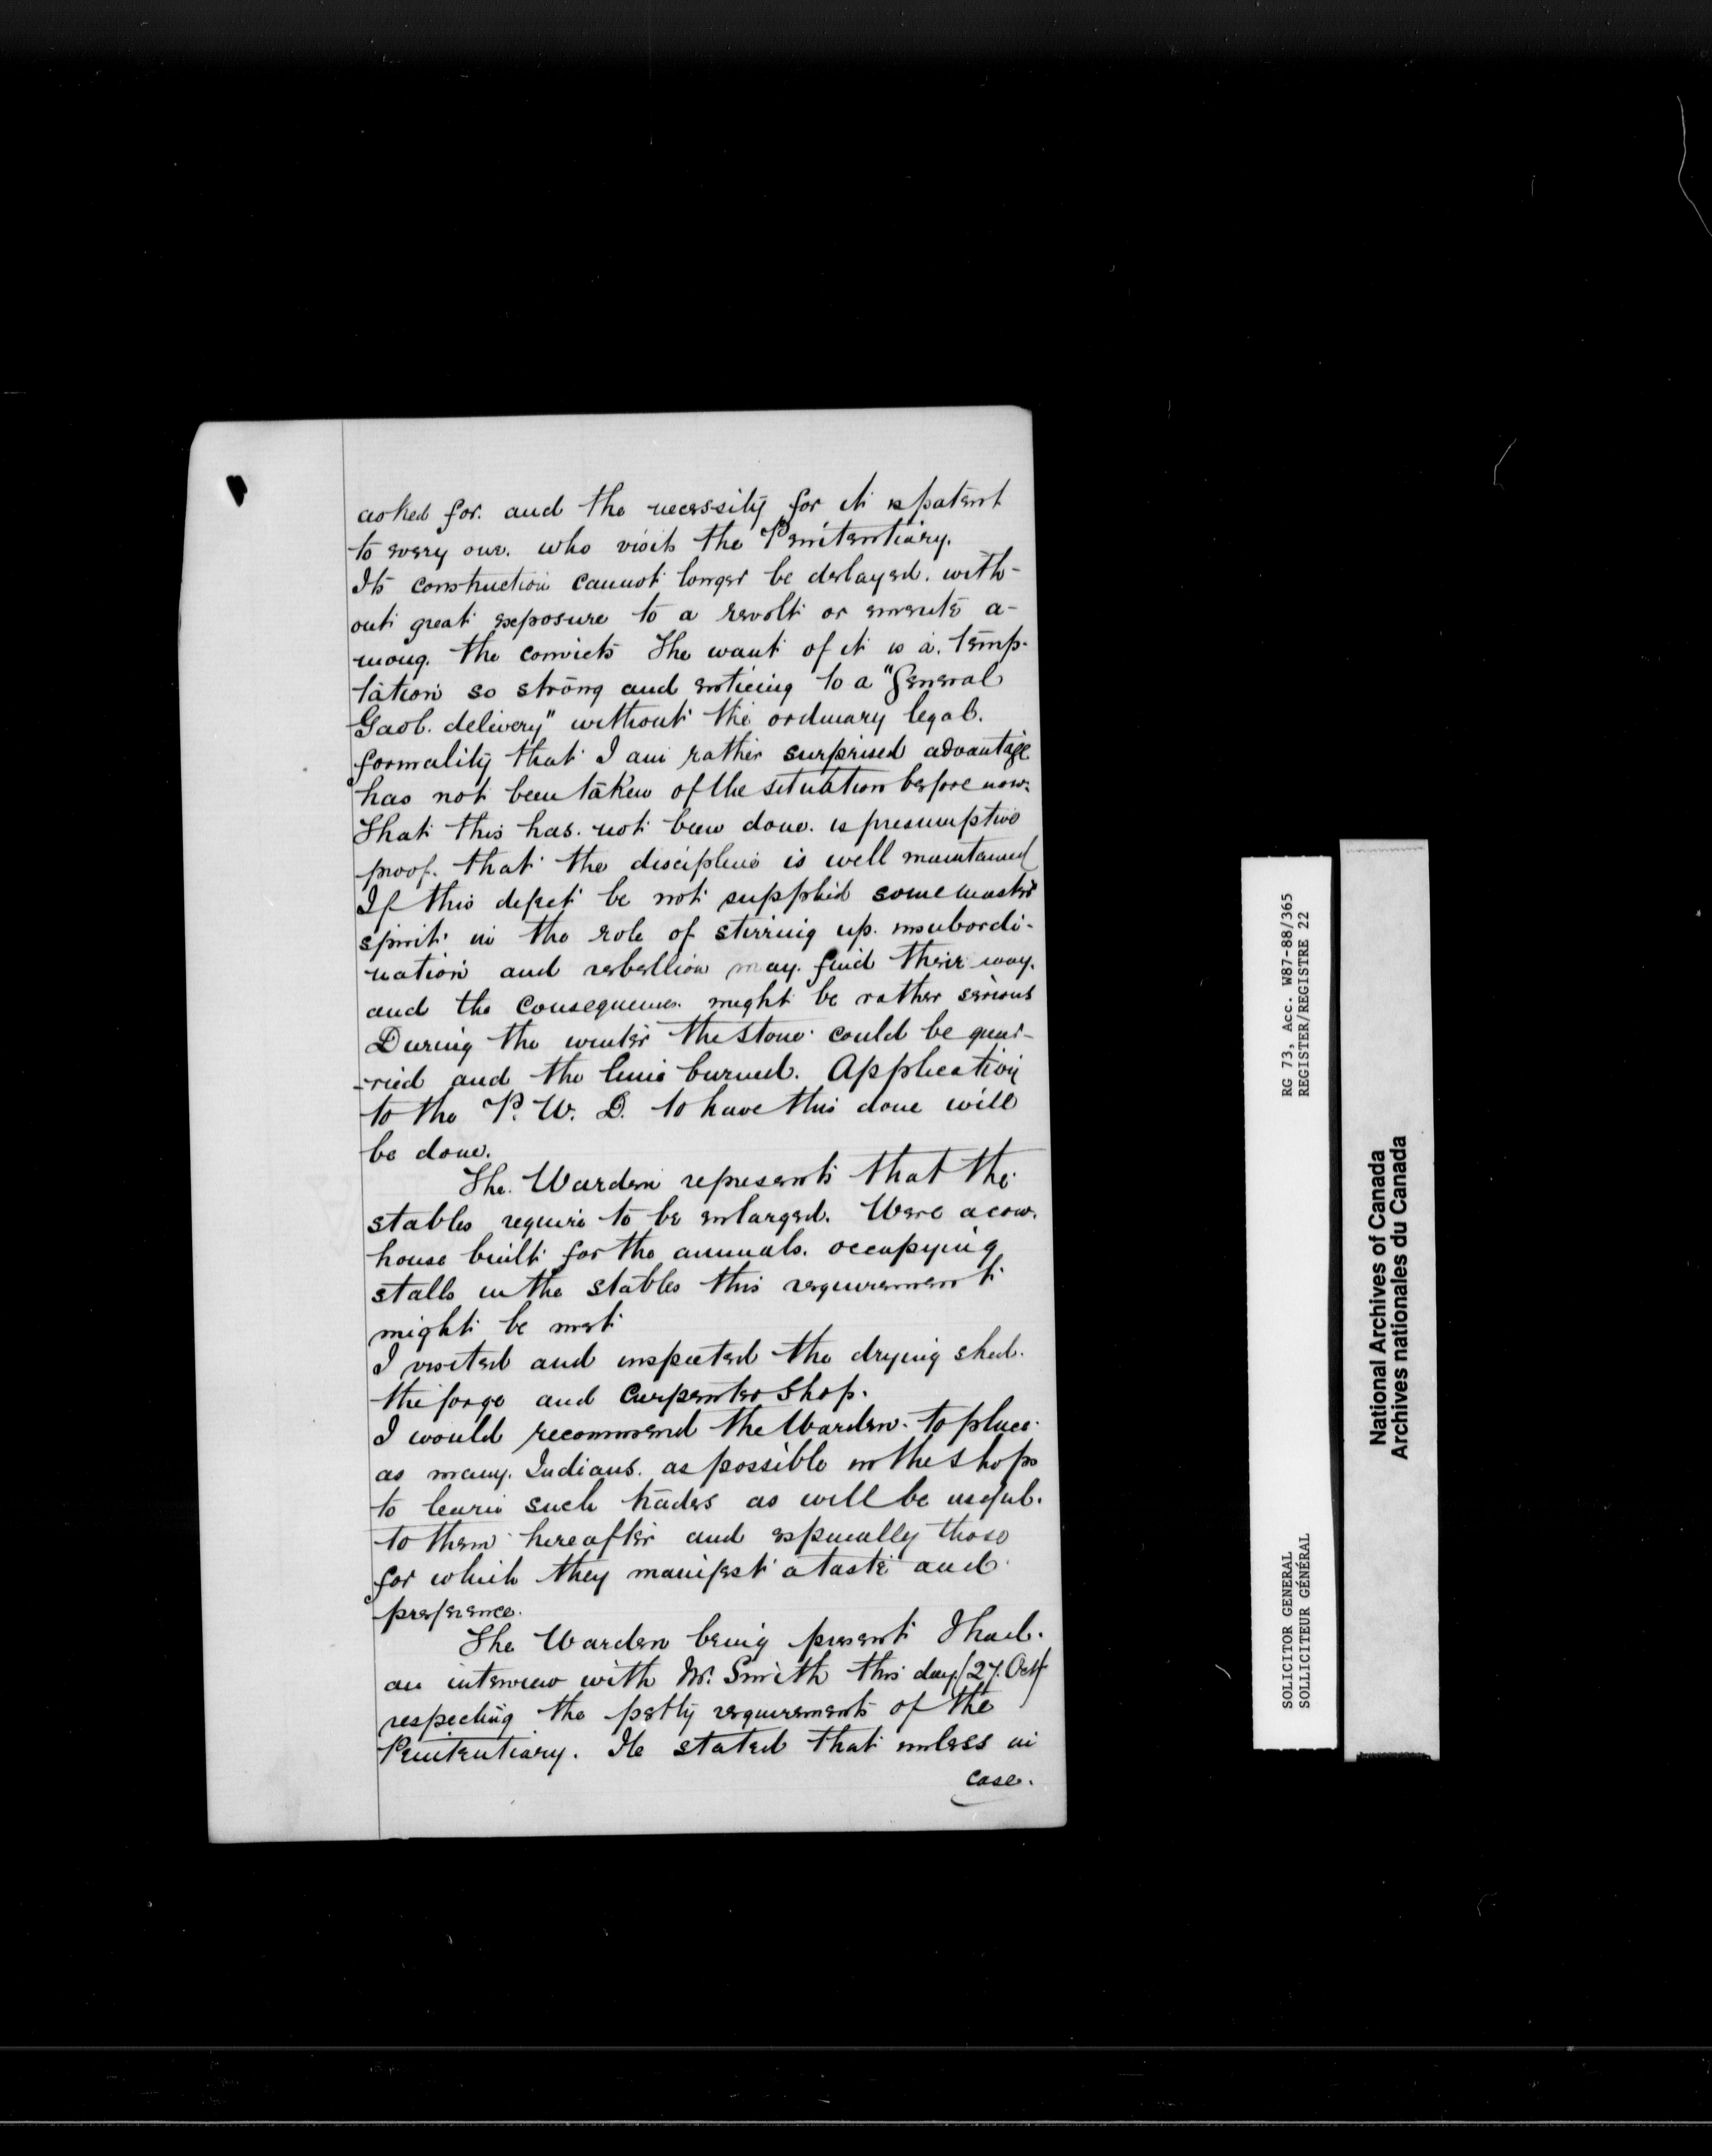 asked for. and the necessity for it is patent
to every one. who visits the Penitentiary.
Its construction cannot longer be delayed. with-
out great exposure to a revolt or emeute a-
mong. the convicts The want of it is a. temp-
tation so strong and enticing to a "General
Gaol. delivery" without the ordinary legal.
formality that I am rather surprised advantage
has not been taken of the situation before now.
That this has. not been done. is presumptive
proof. that the discipline is well maintained
If this defect be not supplied some master
spirit in the role of stirring up. insubordi-
nation and rebellion may. find their way.
and the consequences might be rather serious
During the winter the stone could be quar-
-ried and the lime burned. Application
to the P. W. D. to have this done will
be done.
The. Warden represents that the
stables require to be enlarged. Were a cow.
house built for the animals. occupying
stalls in the stables this requirement
might be met
I visited and inspected the drying shed.
the forge and Carpenter Shop.
I would recommend the Warden. to place
as many. Indians. as possible in the shops
to learn such trades as will be useful.
to them hereafter and especially those
for which they manifest a taste and
preference.
The Warden being present I had.
an interview with Mr. Smith this day (27. Oct)
respecting the petty requirements of the
Penitentiary. He stated that unless in
case.
RG 73, Acc. W87-88/365
REGISTER/REGISTRE 22
SOLICITOR GENERAL
SOLLICITEUR GÉNÉRAL
National Archives of Canada
Archives nationales du Canada